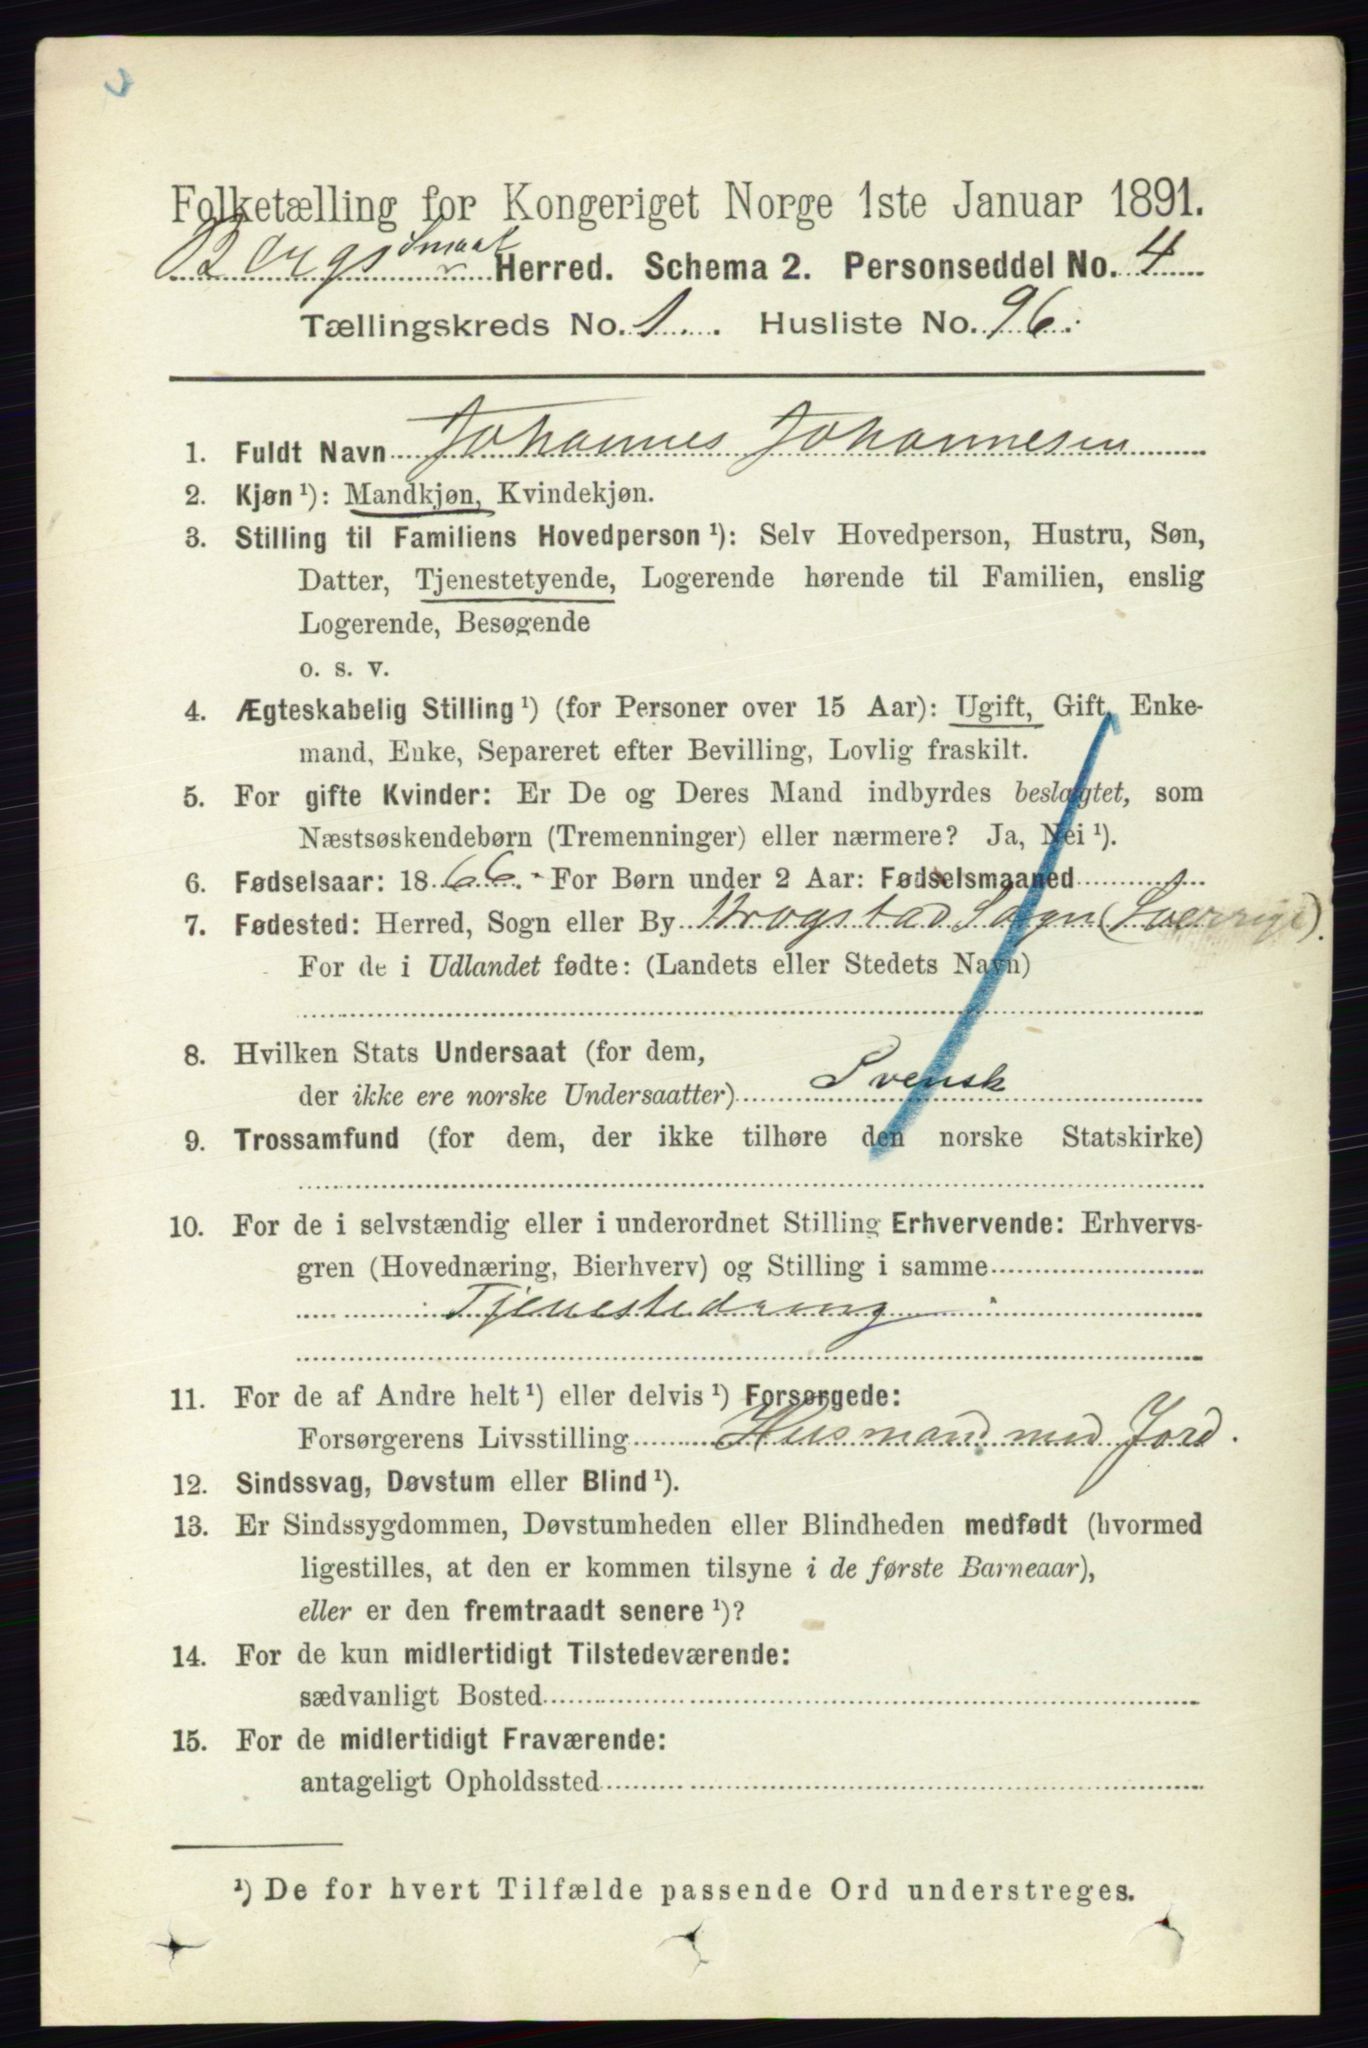 Folketælling for Kongeriget Norge 1ste Januar 1891.
Bergs Smaal Herred. Schema 2. Personseddel No. 4
Tællingskreds No. 1. Husliste No. 96.
1. Fuldt Navn Johannes Johannesen
2. Kjøn ¹): Mandkjøn, Kvindekjøn.
3. Stilling til Familiens Hovedperson ¹): Selv Hovedperson, Hustru, Søn,
Datter, Tjenestetyende, Logerende hørende til Familien, enslig
Logerende, Besøgende
o. s. v.
4. Ægteskabelig Stilling ¹) (for Personer over 15 Aar): Ugift, Gift, Enke-
mand, Enke, Separeret efter Bevilling, Lovlig fraskilt.
5. For gifte Kvinder: Er De og Deres Mand indbyrdes beslægtet, som
Næstsøskendebørn (Tremenninger) eller nærmere? Ja, Nei ¹).
6. Fødselsaar: 1866. For Børn under 2 Aar: Fødselsmaaned
7. Fødested: Herred, Sogn eller By Krogstad Sogn (Sverrige).
For de i Udlandet fødte: (Landets eller Stedets Navn)
8. Hvilken Stats Undersaat (for dem,
der ikke ere norske Undersaatter) Svensk
9. Trossamfund (for dem, der ikke tilhøre den norske Statskirke)
10. For de i selvstændig eller i underordnet Stilling Erhvervende: Erhvervs-
gren (Hovednæring, Bierhverv) og Stilling i samme
Tjenestedreng
11. For de af Andre helt ¹) eller delvis ¹) Forsørgede:
Forsørgerens Livsstilling Husmand med Jord.
12. Sindssvag, Døvstum eller Blind ¹).
13. Er Sindssygdommen, Døvstumheden eller Blindheden medfødt (hvormed
ligestilles, at den er kommen tilsyne i de første Barneaar),
eller er den fremtraadt senere ¹)?
14. For de kun midlertidigt Tilstedeværende:
sædvanligt Bosted
15. For de midlertidigt Fraværende:
antageligt Opholdssted
¹) De for hvert Tilfælde passende Ord understreges.